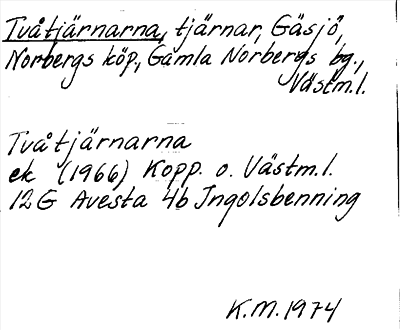 Tvåtjärnarna, tjärnar, Gäsjö,
Norbergs köp., Gamla Norbergs bg.,
Västm.l.
Tvåtjärnarna
ek (1966) Kopp. o. Västm.l.
12G Avesta 4b Ingolsbenning
K.M. 1974